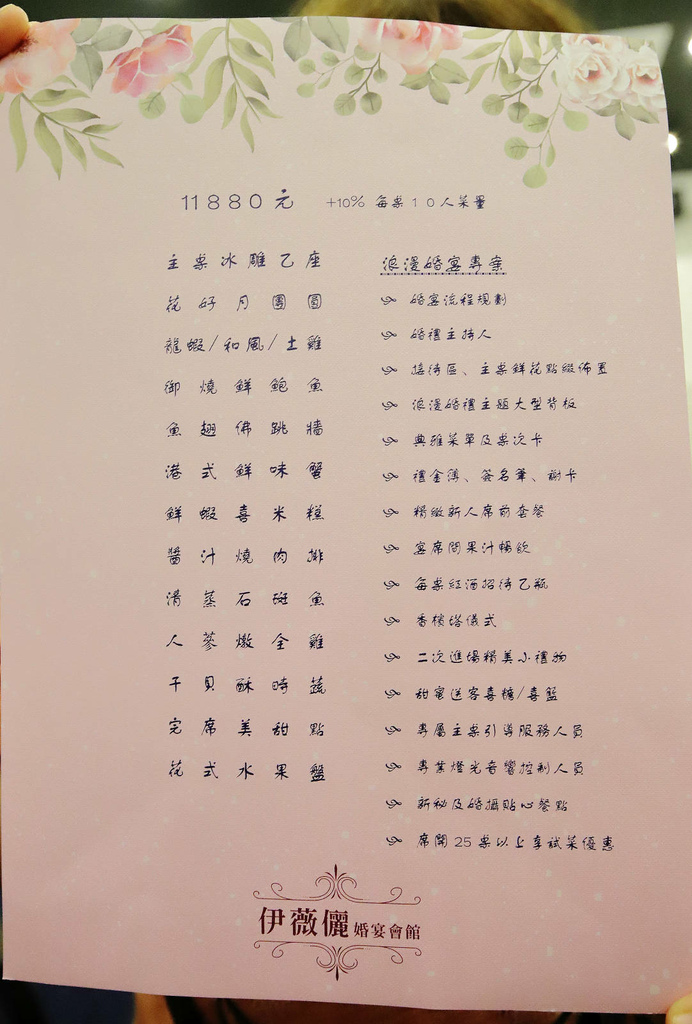 11880元 +10% 每桌10人菜量
主桌冰雕乙座
花好月團圓
龍蝦/和風/土雞
御燒鮮鮑魚
魚翅佛跳牆
港式鮮味蟹
鮮蝦喜米糕
醬汁燒肉排
清蒸石斑魚
人蔘燉全雞
干貝酥時蔬
完席美甜點
花式水果盤
浪漫婚宴專案
婚宴流程規劃
婚禮主持人
接待區、主桌鮮花點綴佈置
浪漫婚禮主題大型背板
典雅菜單及桌次卡
禮金簿、簽名筆、謝卡
精緻新人席前套餐
宴席間果汁暢飲
每桌紅酒招待乙瓶
香檳塔儀式
二次進場精美小禮物
甜蜜送客喜糖/喜盤
專屬主桌引導服務人員
專業燈光音響控制人員
新秘及婚攝貼心餐點
席開25桌以上享試菜優惠
伊薇儷婚宴會館